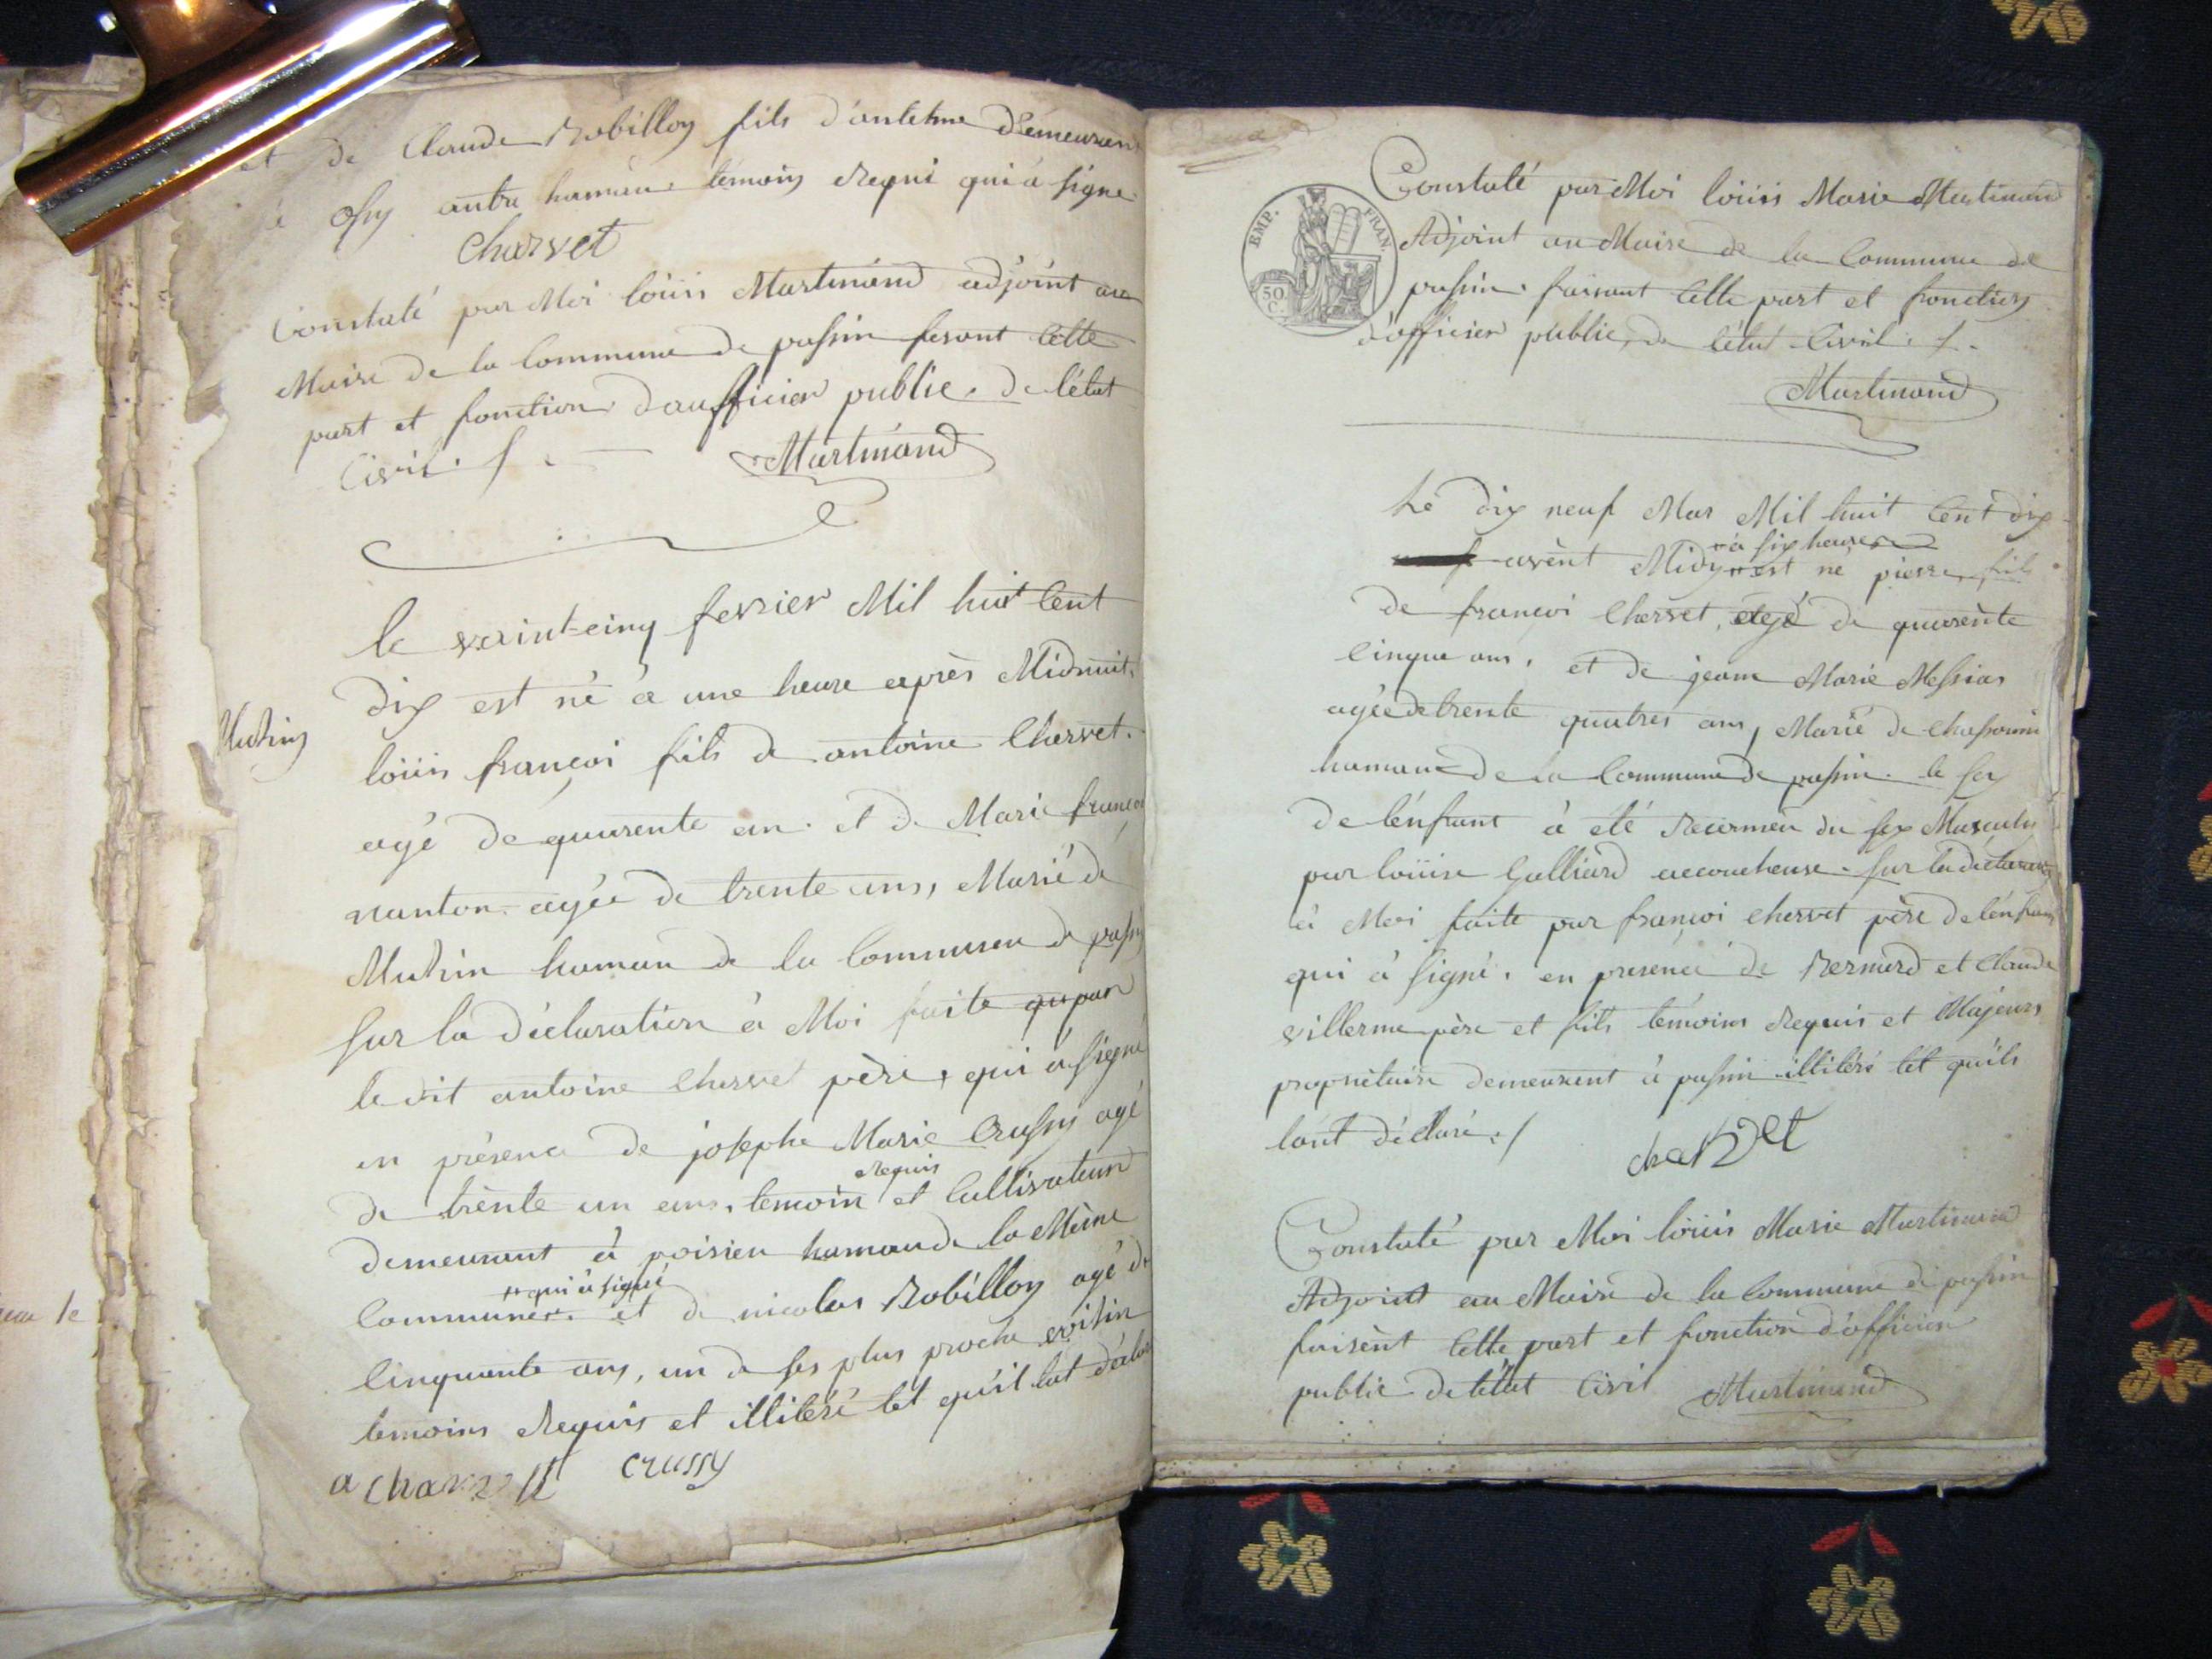 et de Claude Robilloy fils d'antelme demeurent
à ossy autre hamaux témoin requi qui à signe
Charvet
Constaté par Moi loüis Martinand adjoint au
Maire de la Commune de passin fesant cette
part et fonction d'aufficier public de l'état
Civil. /.
Martinand
le vaint-cinq fevrier Mil huit Cent
dix est né à une heure après Midnuit.
Mutrin
loüis françoi fils de antoine Chervet.
agé de quarente an. et de Marie françoi
nanton agée de trente ans, Marié de
Mutrin hamau de la Commune de passin
sur la déclaration à Moi faite par
le dit antoine Chervet père, qui à signé
en présence de josephe Marie Crussy agé
requis
de trente un ans, temoin et Cultivateur
demeurant à poisieu hamau de la Même
qui à signé
Commune et de nicolas Robilloy agé de
Cinquante ans, un de ses plus proche voisin
temoins requis et illitéré tel qu'il lat déclaré
a charvet crussy
Constaté par Moi loüis Marie Martinand
Adjoint au Maire de la Commune de
EMP. FRAN.
50 C.
passin. faisant Cette part et fonction
d'officier public, de l'état Civil. /.
Martinand
Le dix neuf Mar Mil huit Cent dix
à six heures
avènt Midy est né pierre, fils
de françoi Chervet, agé de quarènte
Cinque ans, et de jeane Marie Messias
agée de trente quatres ans, Marié de
hamau de la Commune de passin. le sex
de l'énfant à été reconnu du sex Masculin
par loüise Galliard accoucheuse. Sur la déclaration
à Moi faite par françoi chervet père de l'énfant
qui à signé. en présence de Bernard et Claude
villerme père et fils témoins requis et Majeurs
propriétaire demeurent à passin illitéré tel qu'ils
lont déclaré. /
charvet
Constaté par Moi loüis Marie Martinand
Adjoint au Maire de la Commune de passin
faisènt Cette part et fonction d'officier
public de l'état Civil Martinand